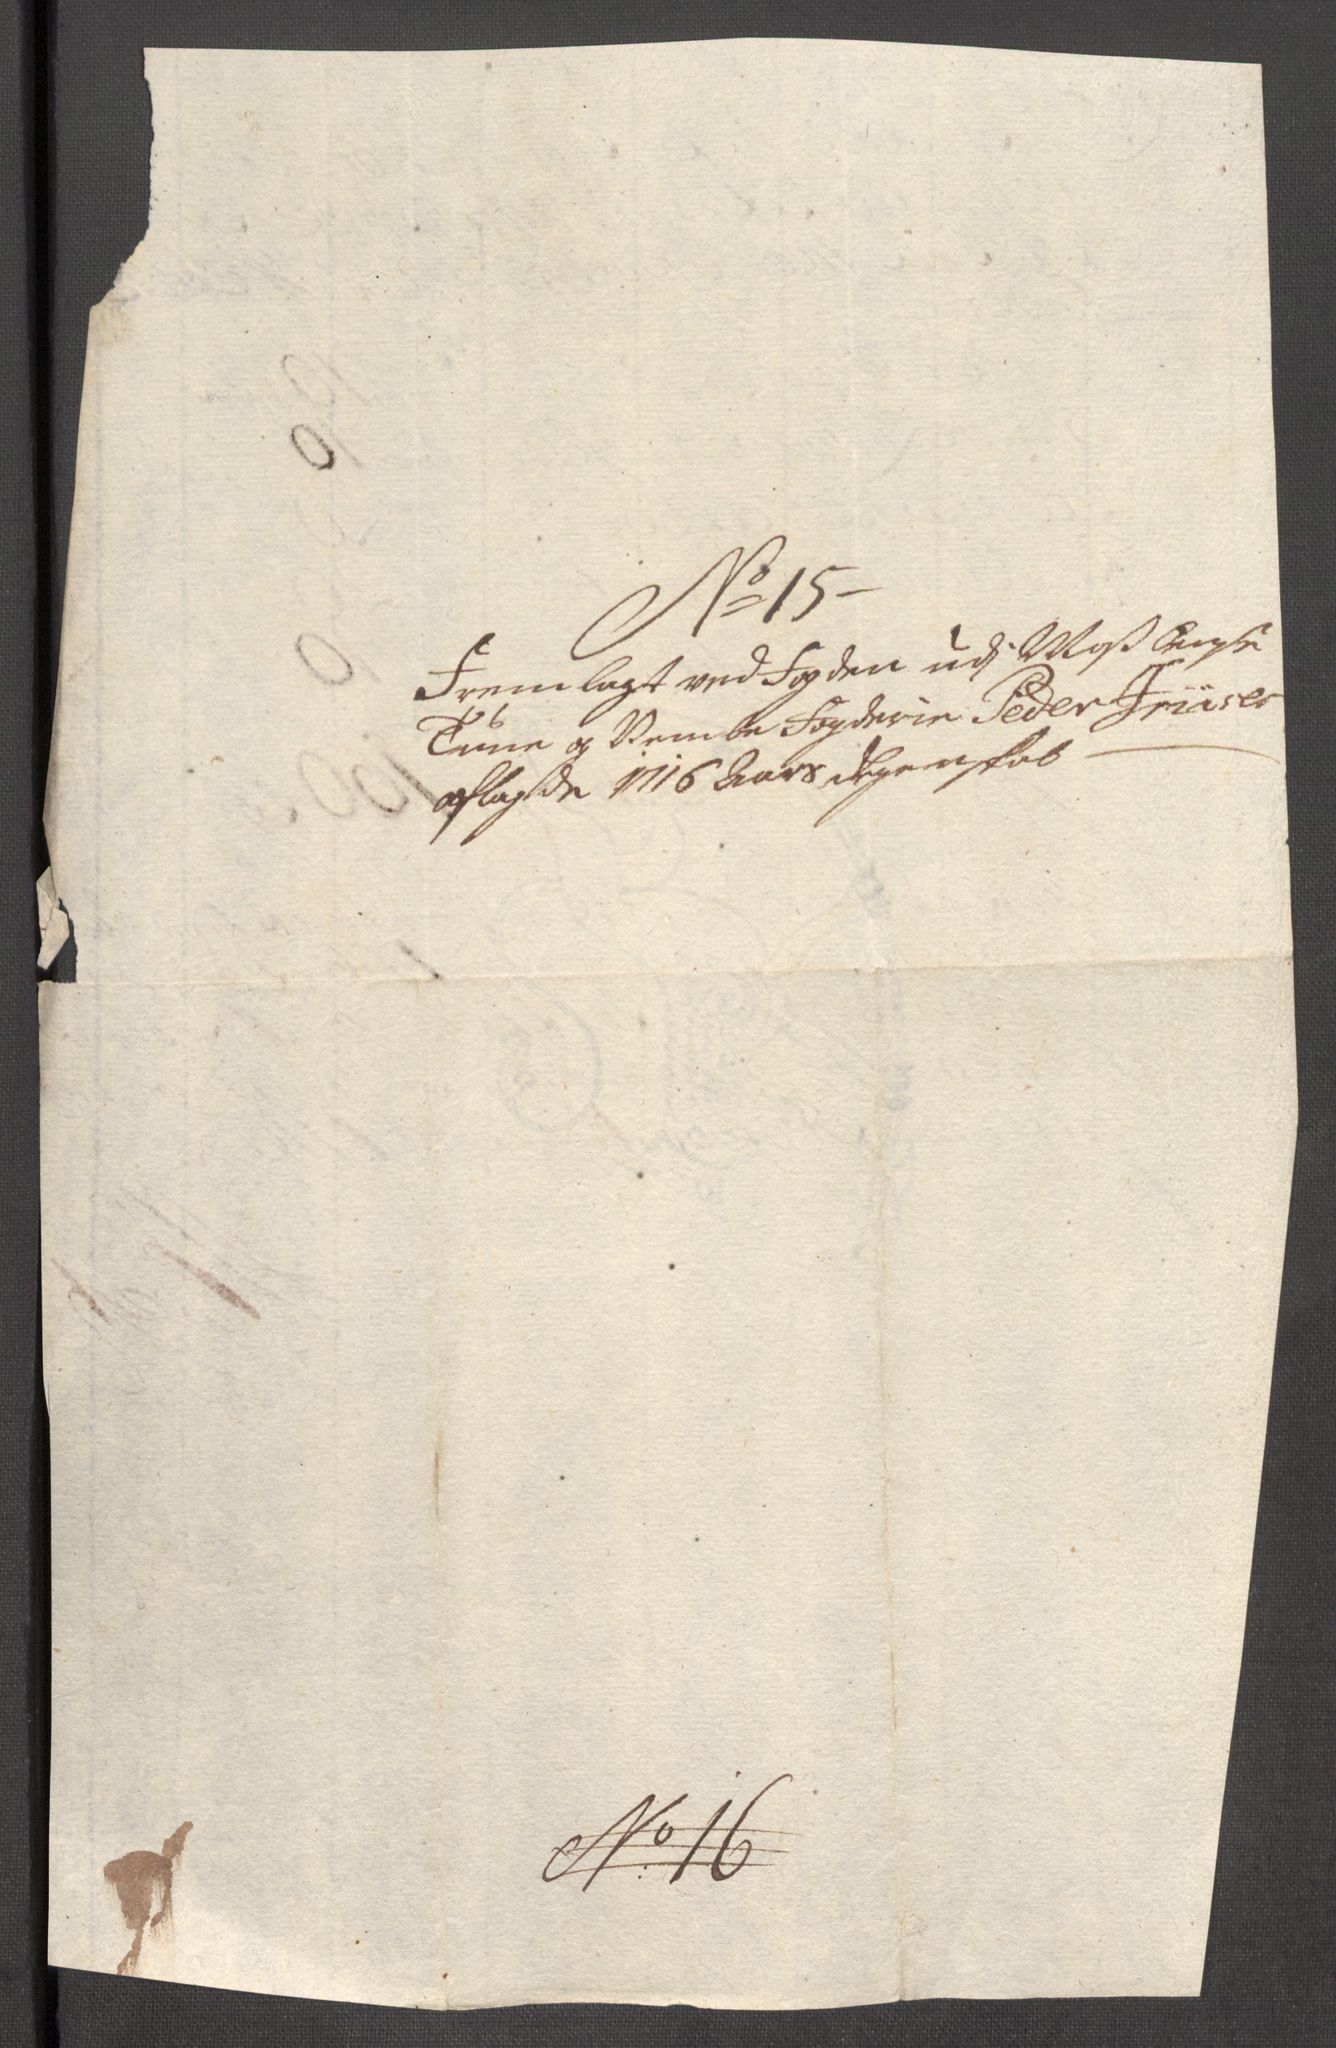 No 15 -
Fremlagt ved Fogden udj Moss
Tune og Vembe Fogderie Peder
aflagde 1716 Aars Regenskab
No: 16